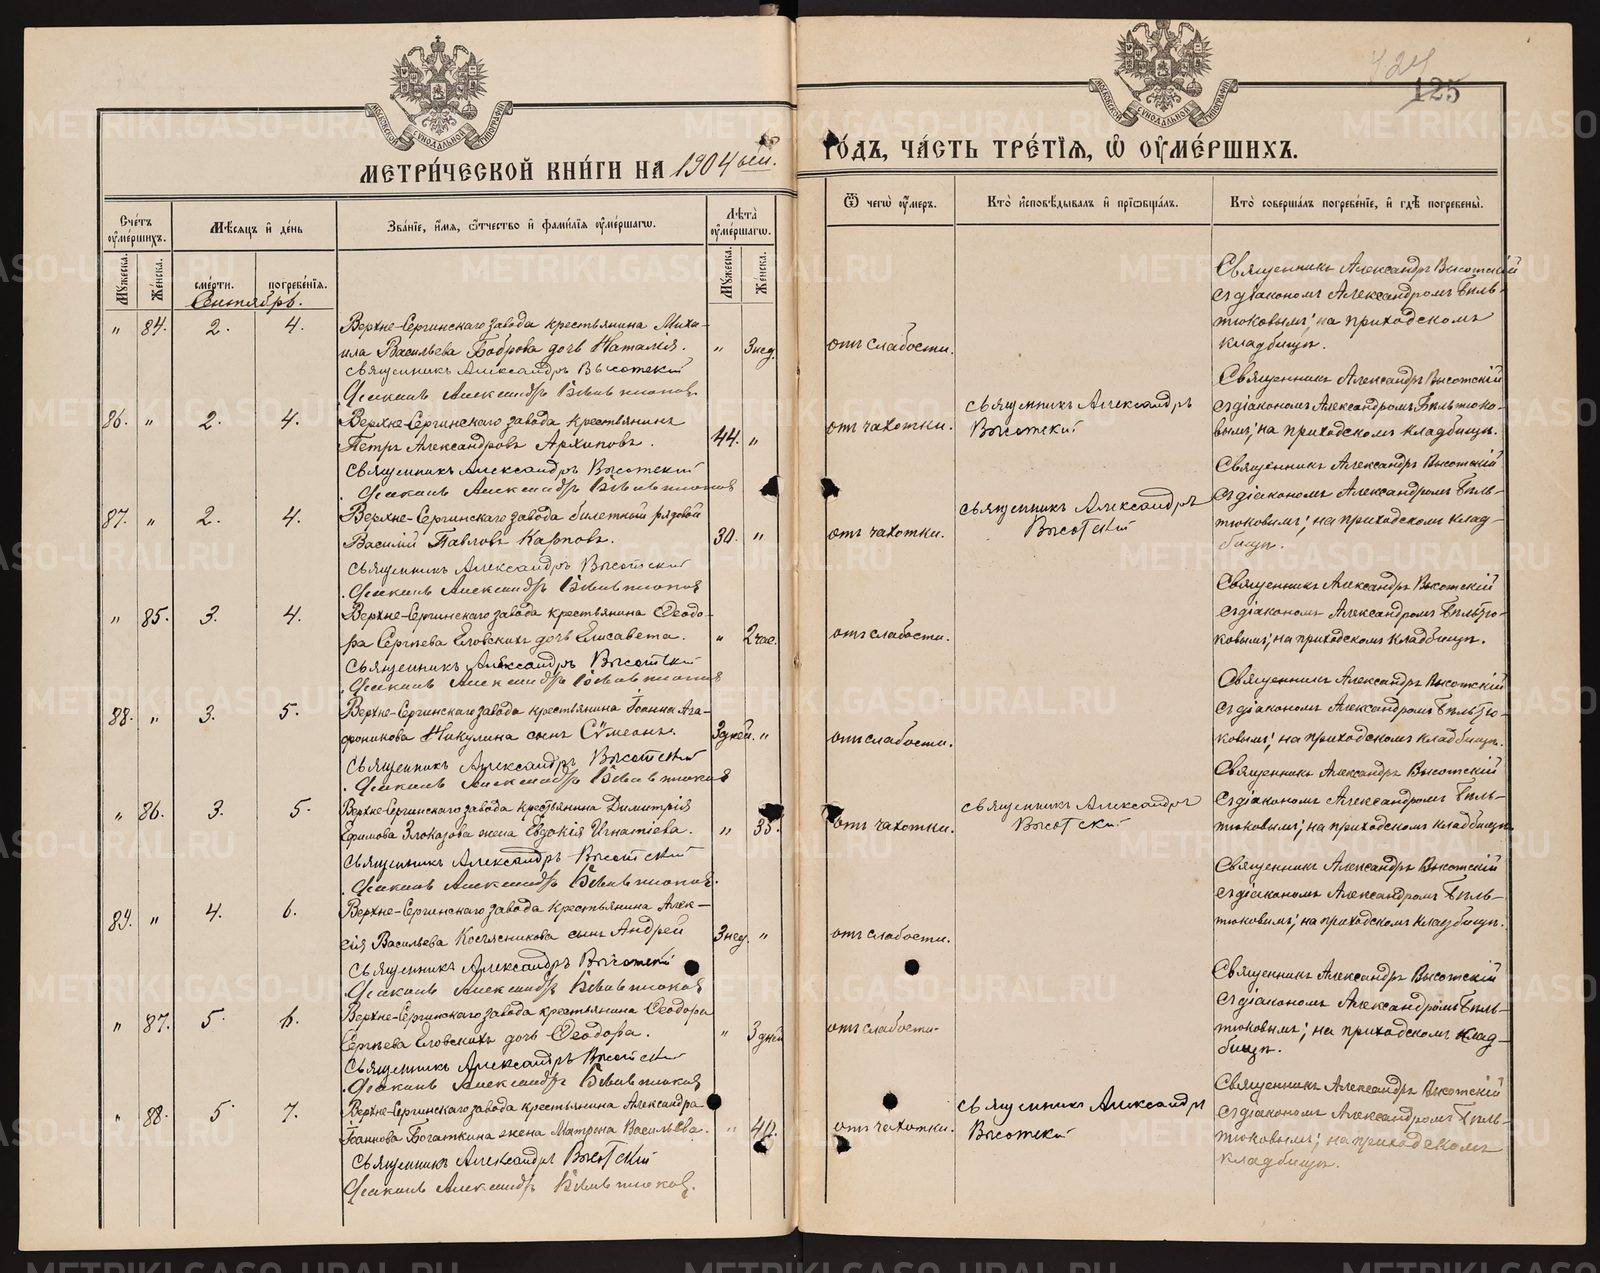 424
125
МОСКОВСКОЙ СѴНОДАЛЬНОЙ ТИПОГРАФІИ
МОСКОВСКОЙ СѴНОДАЛЬНОЙ ТИПОГРАФІИ
МЕТРИ́ЧЕСКОЙ КНИ́ГИ НА 1904 ый
ГО́ДЪ, ЧА́СТЬ ТРЕ́ТІѦ, Ѽ ОУ҆МЕ́РШИХЪ.
Сче́тъ оу҆ме́ршихъ.
Мѣ́сѧцъ и҆ де́нь
Зва́ніе, и҆́мѧ, ѻ҆́тчество и҆ фами́лїѧ оу҆ме́ршагѡ.
Лѣ́та оу҆ме́ршагѡ.
Ѿ чегѡ̀ оу҆́меръ.
Кто̀ и҆сповѣ́дывалъ и҆ прїѡбща́лъ.
Кто̀ соверша́лъ погребе́нїе, и҆ гдѣ̀ погребены̀.
Мꙋ́жеска.
Же́нска.
сме́рти.
погребе́нїѧ.
Мꙋ́жеска.
Же́нска.
Сентябрь.
" 84. 2. 4.
Верхне-Сергинскаго завода крестьянина Миха-
ила Васильева Боброва дочь Наталія. " 3 нед.
Священникъ Александръ Высотский
Диаконъ Александръ Бѣльтюковъ
отъ слабости.
Священникъ Александръ Высотскій
съ діакономъ Александромъ Бѣль-
тюковымъ; на приходскомъ
кладбищѣ.
86. " 2. 4.
Верхне-Сергинскаго завода крестьянинъ
Петръ Александровъ Архиповъ. 44. "
Священникъ Александръ Высотский
Диаконъ Александръ Бѣльтюковъ
отъ чахотки.
Священникъ Александръ
Высотский
Священникъ Александръ Высотскій
съ діакономъ Александромъ Бѣльтюко-
вымъ; на приходскомъ кладбищѣ.
87. " 2. 4.
Верхне-Сергинскаго завода билетный рядовой
Василій Павловъ Карповъ. 30. "
Священникъ Александръ Высотский
Диаконъ Александръ Бѣльтюковъ
отъ чахотки.
Священникъ Александръ
Высотский
Священникъ Александръ Высотскій
съ діакономъ Александромъ Бѣль-
тюковымъ; на приходскомъ клад-
бищѣ.
" 85. 3. 4.
Верхне-Сергинскаго завода крестьянина Ѳеодо-
ра Сергѣева Еловскихъ дочь Елисавета. " 2 час.
Священникъ Александръ Высотский
Диаконъ Александръ Бѣльтюковъ
отъ слабости.
Священникъ Александръ Высотскій
съ діакономъ Александромъ Бѣльтю-
ковымъ; на приходскомъ кладбищѣ.
88. " 3. 5.
Верхне-Сергинскаго завода крестьянина Іоанна Ага-
фоникова Никулина сынъ Сѵмеонъ. 3 дней. "
Священникъ Александръ Высотский
Диаконъ Александръ Бѣльтюковъ
отъ слабости.
Священникъ Александръ Высотскій
съ діакономъ Александромъ Бѣльтю-
ковымъ; на приходскомъ кладбищѣ.
" 86. 3. 5.
Верхне-Сергинскаго завода крестьянина Димитрія
Ефимова Злоказова жена Евдокія Игнатіева. " 35.
Священникъ Александръ Высотский
Диаконъ Александръ Бѣльтюковъ.
отъ чахотки.
Священникъ Александръ
Высотский
Священникъ Александръ Высотскій
съ діакономъ Александромъ Бѣль-
тюковымъ; на приходскомъ кладбищѣ.
89. " 4. 6.
Верхне-Сергинскаго завода крестьянина Алек-
сія Васильева сынъ Андрей 3 нед. "
Священникъ Александръ Высотский
Диаконъ Александръ Бѣльтюковъ
отъ слабости.
Священникъ Александръ Высотскій
съ діакономъ Александромъ Бѣль-
тюковымъ; на приходскомъ кладбищѣ.
" 87. 5. 6.
Верхне-Сергинскаго завода крестьянина Ѳеодора
Сергѣева Еловскихъ дочь Ѳеодора. " 3 дней
Священникъ Александръ Высотский
Диаконъ Александръ Бѣльтюковъ
отъ слабости.
Священникъ Александръ Высотскій
съ діакономъ Александромъ Бѣль-
тюковымъ; на приходскомъ клад-
бищѣ.
" 88. 5. 7.
Верхне-Сергинскаго завода крестьянина Александра
Іоаннова Богаткина жена Матрона Васильева. " 40.
Священникъ Александръ Высотский
Диаконъ Александръ Бѣльтюковъ.
отъ чахотки.
Священникъ Александръ
Высотский
Священникъ Александръ Высотскій
съ діакономъ Александромъ Бѣль-
тюковымъ; на приходскомъ
кладбищѣ.
METRIKI.GASO-URAL.RU